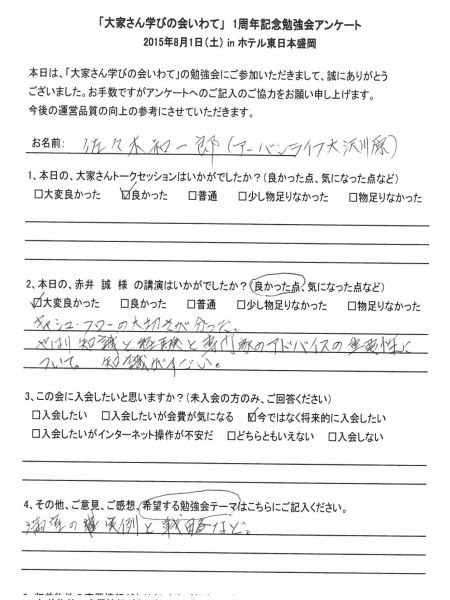 「大家さん学びの会いわて」 1周年記念勉強会アンケート
2015年8月1日（土） in ホテル東日本盛岡
本日は、「大家さん学びの会いわて」の勉強会にご参加いただきまして、誠にありがとう
ございました。お手数ですがアンケートへのご記入のご協力をお願い申し上げます。
今後の運営品質の向上の参考にさせていただきます。
お名前: 佐々木和一郎（アーバンライフ大沢川原）
1、本日の、大家さんトークセッションはいかがでしたか？（良かった点、気になった点など）
□大変良かった ☑良かった □普通 □少し物足りなかった □物足りなかった
2、本日の、赤井 誠 様 の講演はいかがでしたか？（良かった点、気になった点など）
☑大変良かった □良かった □普通 □少し物足りなかった □物足りなかった
キャッシュ・フローの大切さが分った。
やはり知識と経験と専門家のアドバイスの重要性に
ついて。知識が
3、この会に入会したいと思いますか？（未入会の方のみ、ご回答ください）
□入会したい □入会したいが会費が気になる ☑今ではなく将来的に入会したい
□入会したいがインターネット操作が不安だ □どちらともいえない □入会しない
4、その他、ご意見、ご感想、希望する勉強会テーマはこちらにご記入ください。
満室の 実例と戦略など。